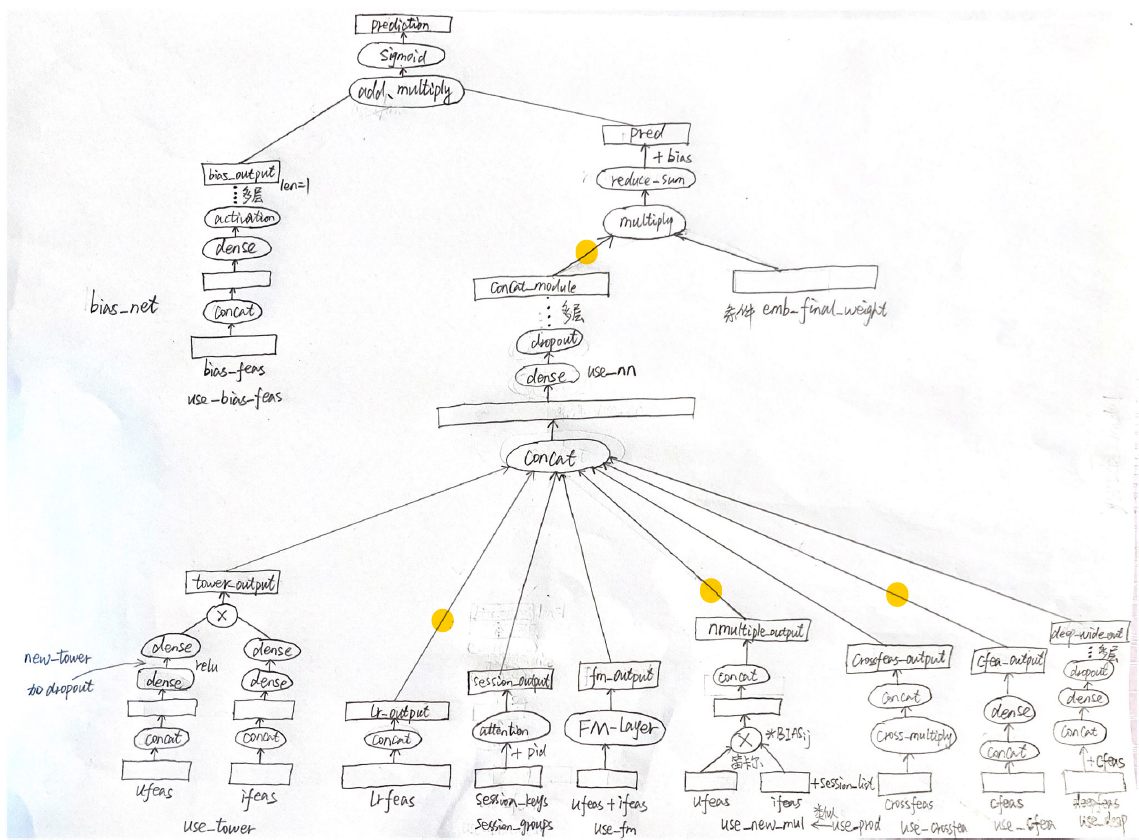 prediction
Sigmoid
add、multiply
pred
+ bias
reduce-sum
multiply
bias_output
len=1
多层
activation
dense
concat
bias_net
bias-feas
use-bias-feas
Concat_module
多层
条件 emb-final_weight
dropout
dense
use_nn
concat
tower_output
X
dense
relu
dense
concat
ufeas
dense
dense
concat
ifeas
use_tower
new-tower
加dropout
Lr-output
concat
Lrfeas
session_output
attention
+ pid
session_keys
session_groups
fm_output
FM-Layer
ufeas + ifeas
use_fm
nmultiple_output
concat
X
*BIASij
笛卡尔
ufeas
ifeas
+session_list
use_new_mul
类似
use_prod
Crossfeas-output
concat
Cross-multiply
Crossfeas
use_crossfea
Cfea_output
dense
concat
Cfeas
use_Cfea
deep_wide_out
多层
dropout
dense
concat
+Cfeas
deepfeas
use_deep